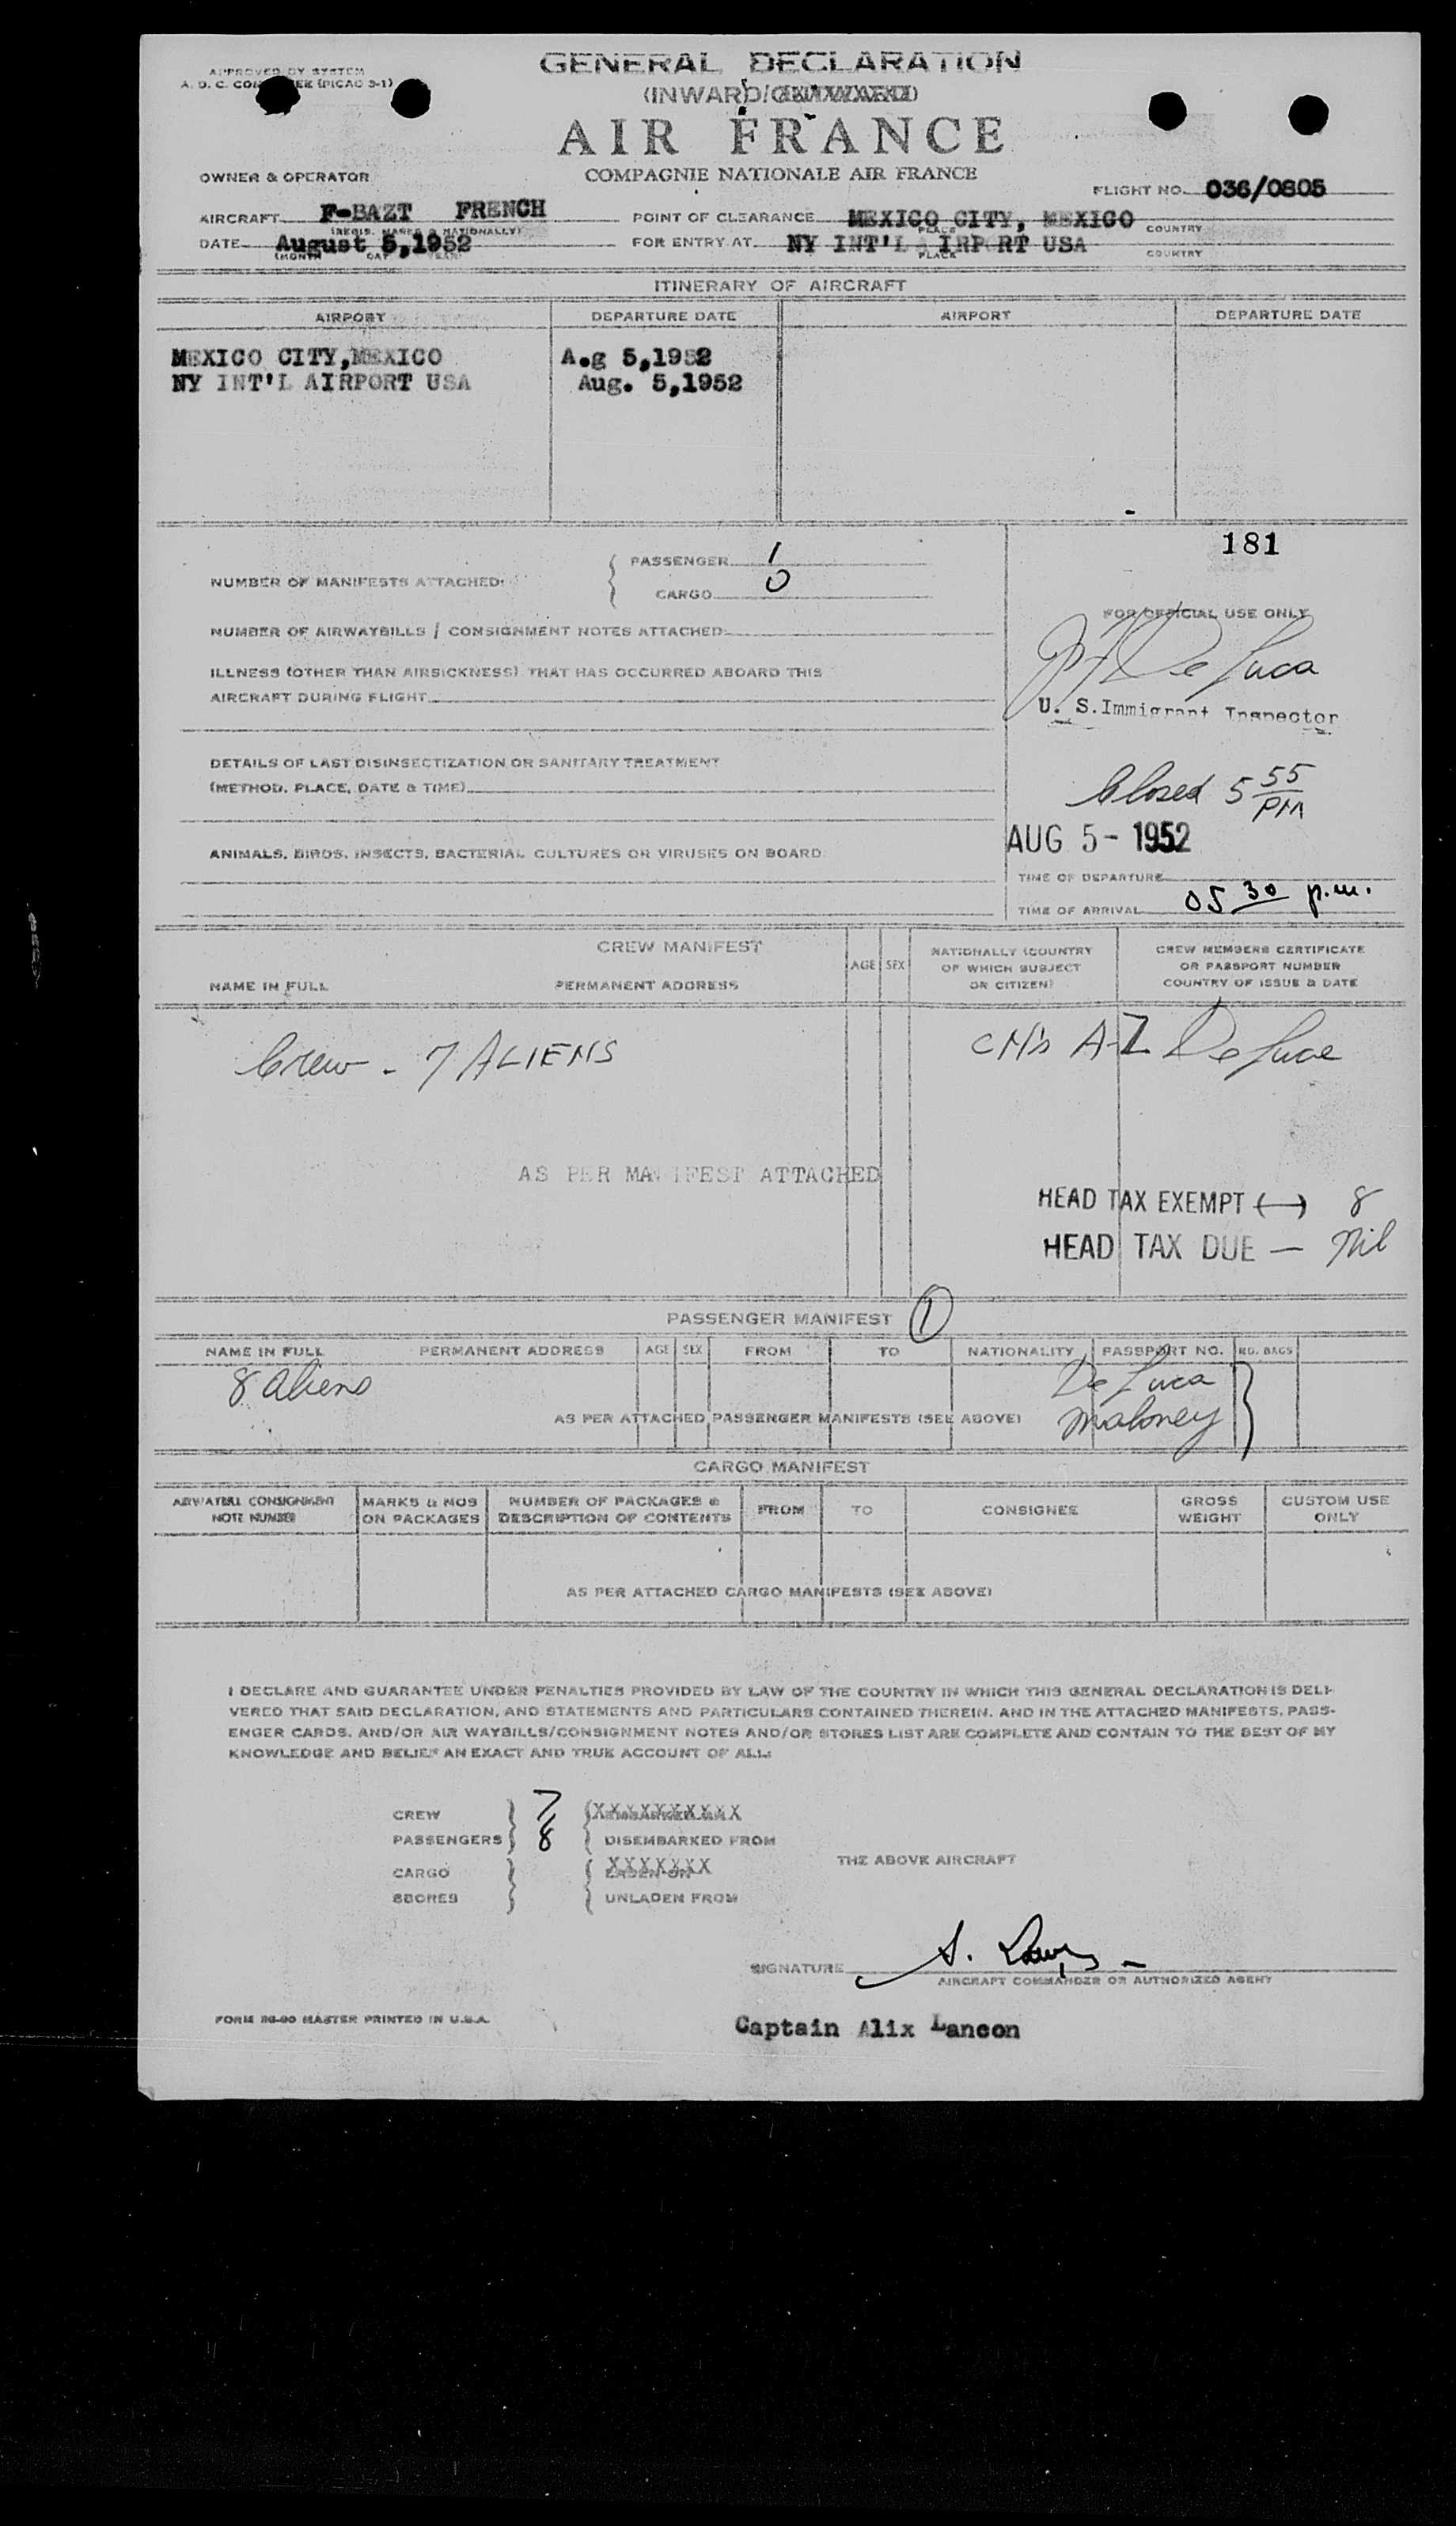 APPROVED BY SYSTEM
A. D. C. (PICAO 3-1)
GENERAL DECLARATION
(INWARD/
AIR FRANCE
COMPAGNIE NATIONALE AIR FRANCE
OWNER & OPERATOR
FLIGHT NO. 036/0805
AIRCRAFT F-BAZT FRENCH
(REGIS. MARKS & NATIONALLY)
POINT OF CLEARANCE MEXICO CITY, MEXICO
PLACE COUNTRY
DATE August 5,1952
(MONTH DAY YEAR)
FOR ENTRY AT NY INT'L AIRPORT USA
PLACE COUNTRY
ITINERARY OF AIRCRAFT
AIRPORT DEPARTURE DATE AIRPORT DEPARTURE DATE
MEXICO CITY,MEXICO A.g 5,1952
NY INT'L AIRPORT USA Aug. 5,1952
181
NUMBER OF MANIFESTS ATTACHED: PASSENGER 1
CARGO 0
FOR OFFICIAL USE ONLY
NUMBER OF AIRWAYBILLS / CONSIGNMENT NOTES ATTACHED:
ILLNESS (OTHER THAN AIRSICKNESS) THAT HAS OCCURRED ABOARD THIS
AIRCRAFT DURING FLIGHT
De Luca
U. S. Immigrant Inspector
DETAILS OF LAST DISINSECTIZATION OR SANITARY TREATMENT
(METHOD, PLACE, DATE & TIME)
Closed 5 55 PM
AUG 5 - 1952
ANIMALS, BIRDS, INSECTS, BACTERIAL CULTURES OR VIRUSES ON BOARD:
TIME OF DEPARTURE
TIME OF ARRIVAL 05 30 p.m.
CREW MANIFEST
NAME IN FULL PERMANENT ADDRESS AGE SEX
NATIONALLY (COUNTRY
OF WHICH SUBJECT
OR CITIZEN)
CREW MEMBERS CERTIFICATE
OR PASSPORT NUMBER
COUNTRY OF ISSUE & DATE
Crew - 7 ALIENS
De Luca
AS PER MANIFEST ATTACHED
HEAD TAX EXEMPT (-) 8
HEAD TAX DUE - Nil
PASSENGER MANIFEST 1
NAME IN FULL PERMANENT ADDRESS AGE SEX FROM TO NATIONALITY PASSPORT NO. NO. BAGS
8 aliens
De Luca
AS PER ATTACHED PASSENGER MANIFESTS (SEE ABOVE)
Maloney
CARGO MANIFEST
AIRWAYBILL CONSIGNMENT
NOTE NUMBER
MARKS & NOS
ON PACKAGES
NUMBER OF PACKAGES &
DESCRIPTION OF CONTENTS
FROM TO CONSIGNEE
GROSS
WEIGHT
CUSTOM USE
ONLY
AS PER ATTACHED CARGO MANIFESTS (SEE ABOVE)
I DECLARE AND GUARANTEE UNDER PENALTIES PROVIDED BY LAW OF THE COUNTRY IN WHICH THIS GENERAL DECLARATION IS DELI-
VERED THAT SAID DECLARATION, AND STATEMENTS AND PARTICULARS CONTAINED THEREIN, AND IN THE ATTACHED MANIFESTS, PASS-
ENGER CARDS, AND/OR AIR WAYBILLS/CONSIGNMENT NOTES AND/OR STORES LIST ARE COMPLETE AND CONTAIN TO THE BEST OF MY
KNOWLEDGE AND BELIEF AN EXACT AND TRUE ACCOUNT OF ALL:
CREW 7 XXXXXXXXXX
PASSENGERS 8 DISEMBARKED FROM
THE ABOVE AIRCRAFT
CARGO XXXXXXX
UNLADEN FROM
SIGNATURE
AIRCRAFT COMMANDER OR AUTHORIZED AGENT
FORM 86-90 MASTER PRINTED IN U.S.A.
Captain Alix Lancon